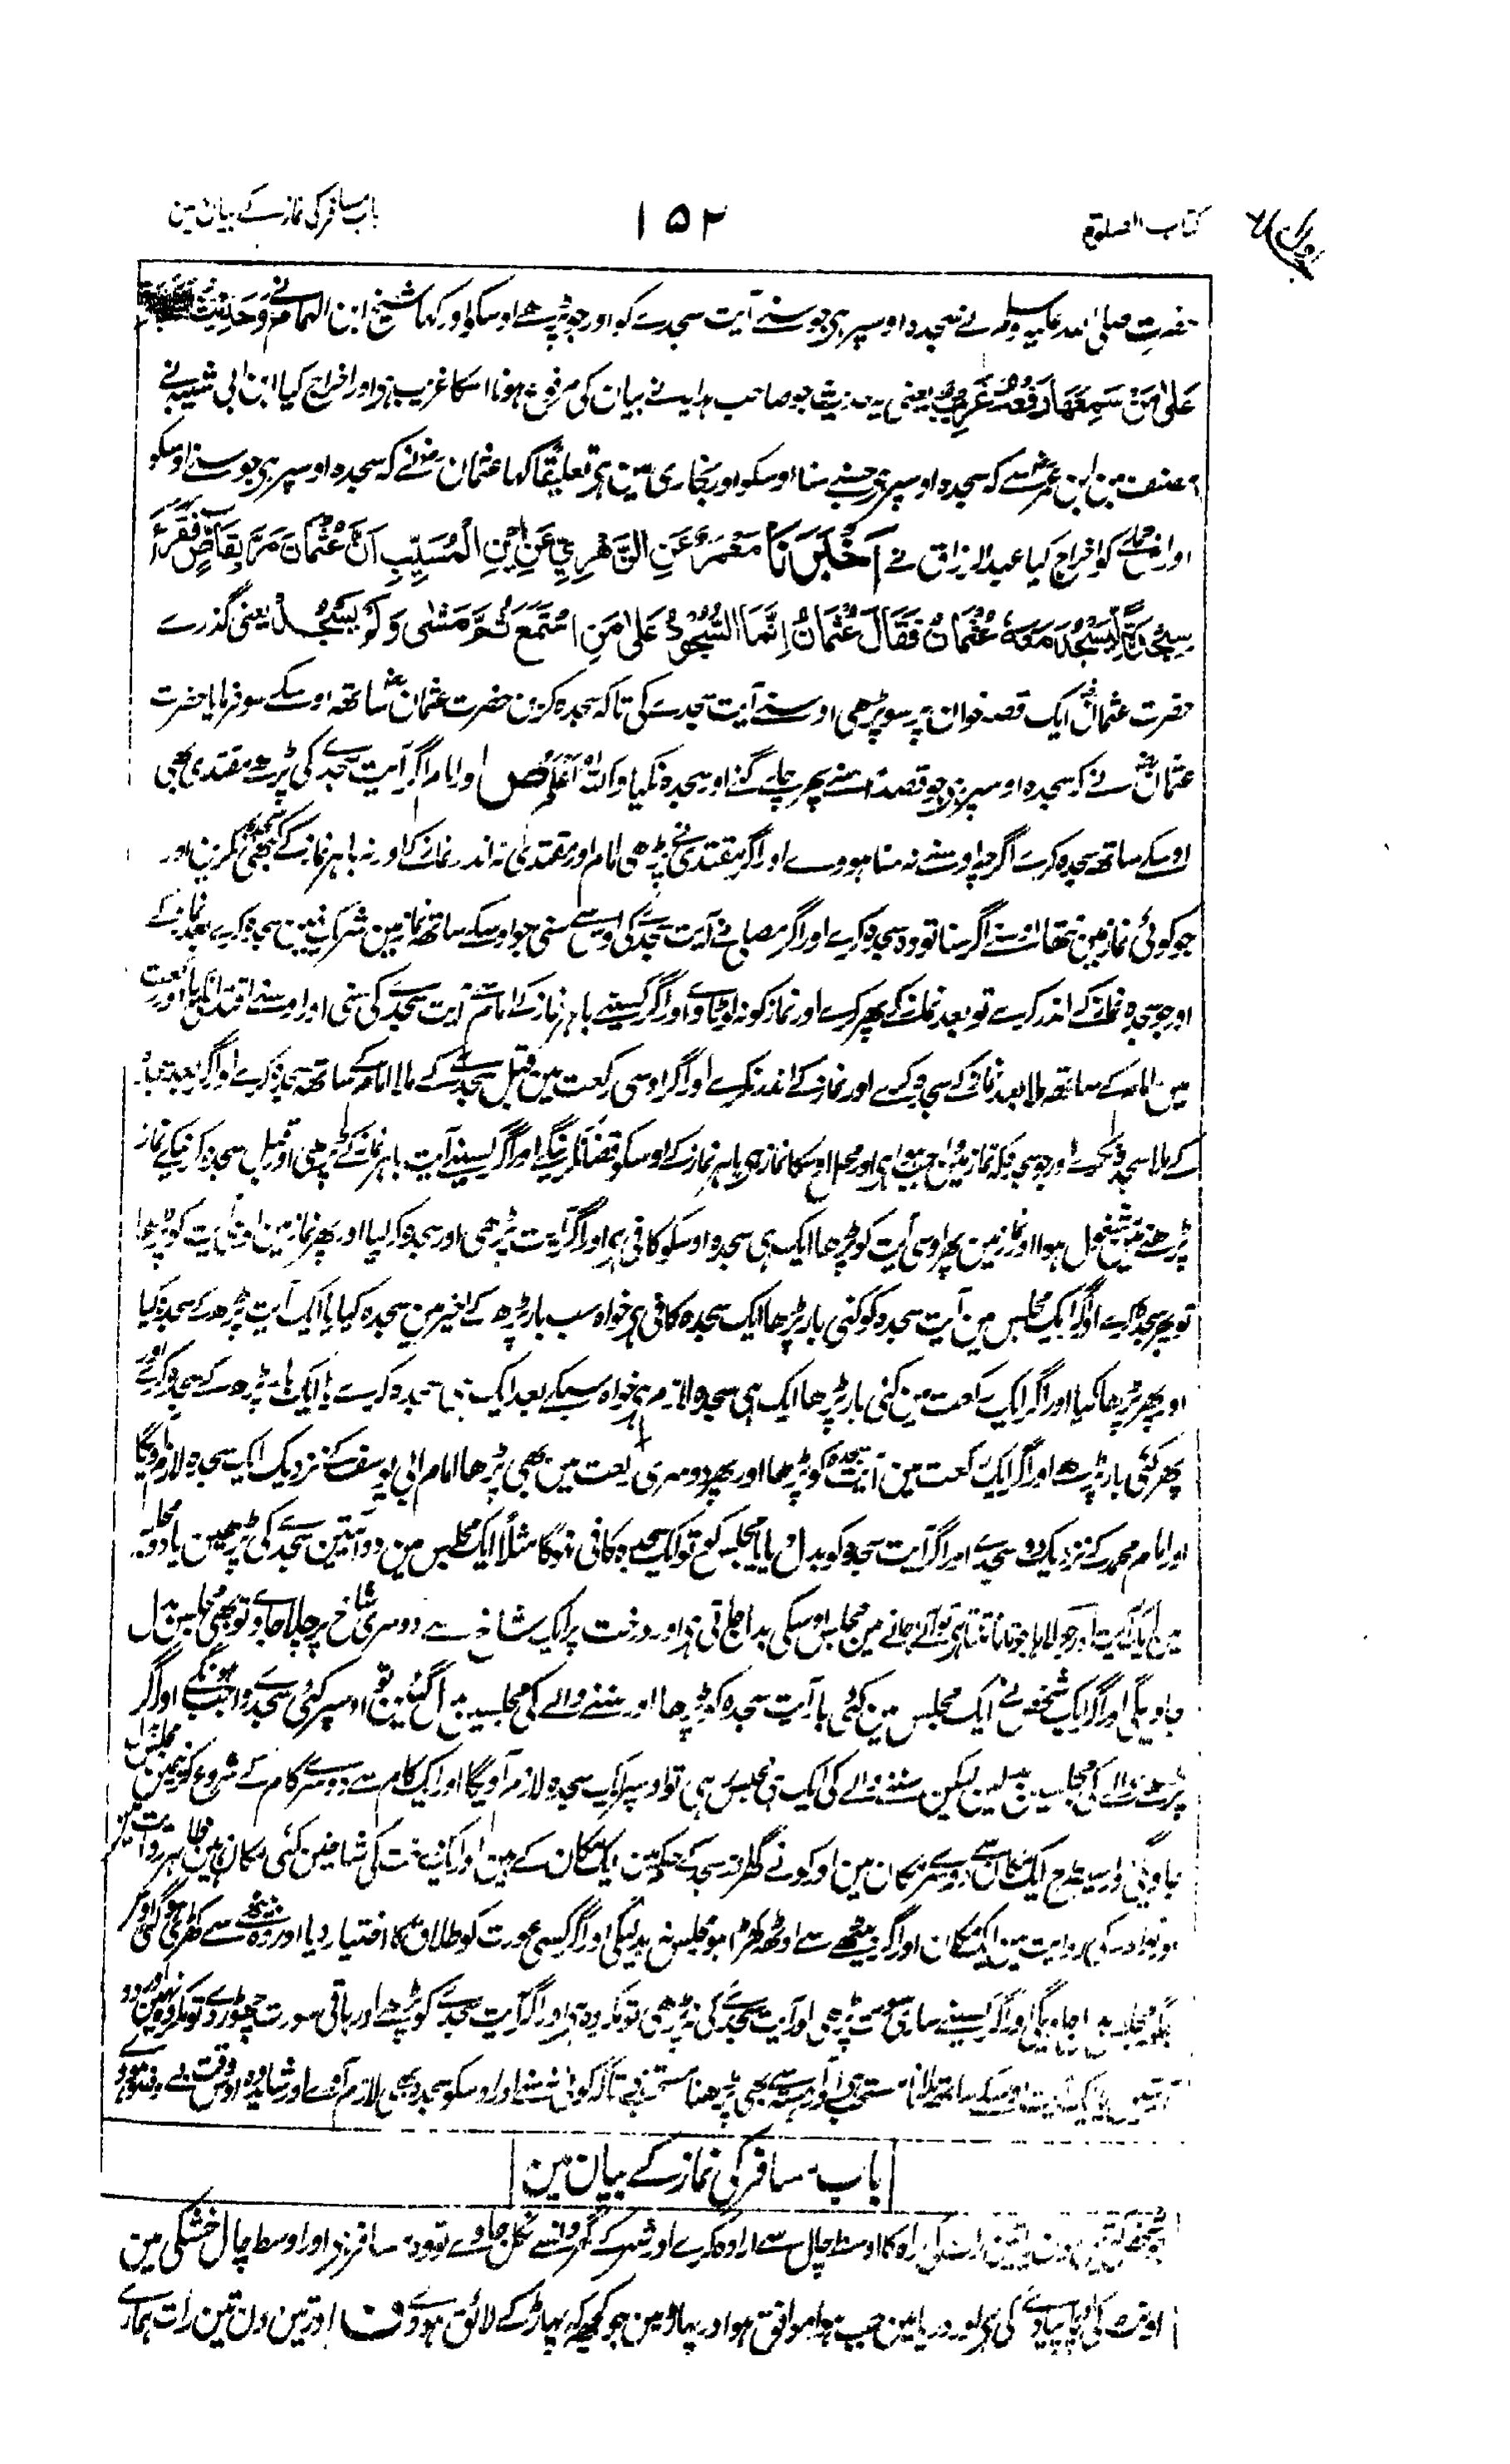 کتاب الصلوة ۱۵۲ باب مسافر کی نماز کے بیان مین
حضرت صلی اللہ علیہ وسلم نے سجدہ اوسپر ہی جو سنے آیت سجدے کو اور جو پڑھے اوسکو اور کہا شیخ ابن الہمام نے وَحَدِیْثُ
عَلٰی مَنْ سَمِعَهَا رَفْعُهٗ غَرِیْبٌ یعنی یہ حدیث جو صاحب ہدایہ نے بیان کی مرفوع ہونا اسکا غریب ہی اور اخراج کیا ابن ابی شیبہ نے
مصنف مین ابن عمر سے کہ سجدہ اوسپر ہی جسنے سنا اوسکو اور بخاری مین ہی تعلیقًا کہا عثمان نے کہ سجدہ اوسپر ہی جو سنے اوسکو
اور کو اخراج کیا عبد الرزاق نے اَخْبَرَنَا مَعْمَرٌ عَنِ الزُّهْرِیِّ عَنِ ابْنِ الْمُسَیِّبِ اَنَّ عُثْمَانَ مَرَّ بِقَاصٍّ فَقَرَأَ
سَجْدَةً لِیَسْجُدَ مَعَهٗ عُثْمَانُ فَقَالَ عُثْمَانُ اِنَّمَا السُّجُوْدُ عَلٰی مَنِ اسْتَمَعَ ثُمَّ مَشٰی وَلَمْ یَسْجُدْ یعنی گذرے
حضرت عثمان ایک قصہ خوان پر سو پڑھی اوسنے آیت سجدے کی تاکہ سجدہ کرین حضرت عثمان ساتھ اوسکے سو فرمایا حضرت
عثمان نے کہ سجدہ اوسپر ہی جو قصدًا سنے پھر چلے گئے اور سجدہ نکیا وَاللّٰهُ اَعْلَمُ ص اور امام اگر آیت سجدے کی پڑھے مقتدی بھی
اوسکے ساتھ سجدہ کرے اگرچہ اوسنے نہ سنا ہووے اور اگر مقتدی نے پڑھی امام اور مقتدی نہ اندر نماز کے اور نہ باہر نماز کے سجدہ نکرین اور
جو کوئی نماز مین نتھا اوسنے اگر سنا تو وہ سجدہ کرے اور اگر مصلی نے آیت سجدے کی اوس سے سنی جو اوسکے ساتھ نماز مین شریک نہین سجدہ کرے بعد نماز کے
اور جو سجدہ نماز کے اندر کرے تو بعد نماز کے پھر کرے اور نماز کو نہ لوٹاوے اور اگر کسینے باہر نماز کے امام سے آیت سجدے کی سنی اور اوسنے اقتدا کیا اور رکعت
مین امام کے ساتھ ملا بعد نماز کے سجدہ کرے اور نماز کے اندر نکرے اور اگر اوسی رکعت مین قبل سجدے کے ملا امام کے ساتھ سجدہ کرے اور اگر بعد سجدے
کے ملا سجدہ نکرے اور جو سجدہ کہ نماز مین واجب ہوا ہی اور محل اوسکا نماز ہی باہر نماز کے اوسکو قضا نکرینگے اور اگر کسینے آیت باہر نماز کے پڑھی اور قبل سجدہ کرنیکے نماز
پڑھنے مین مشغول ہوا اور نماز مین پھر اوسی آیت کو پڑھا ایک ہی سجدہ اوسکو کافی ہی اور اگر آیت پڑھی اور سجدہ کر لیا اور پھر نماز مین اوسی آیت کو پڑھا
تو پھر سجدہ کرے اور اگر ایک مجلس مین آیت سجدہ کو کئی بار پڑھا ایک سجدہ کافی ہی خواہ سب بار پڑھ کے اخیر مین سجدہ کیا یا ایک آیت پڑھ کے سجدہ کیا
اور پھر پڑھا کیا اور اگر ایک رکعت مین کئی بار پڑھا ایک ہی سجدہ لازم ہی خواہ سبکے بعد ایک سجدہ کرے یا ایک بار پڑھ کے سجدہ کرے اور
پھر کئی بار پڑھے اور اگر ایک رکعت مین آیت سجدہ کو پڑھا اور پھر دوسری رکعت مین بھی پڑھا امام ابی یوسف کے نزدیک ایک سجدہ لازم ہوگا
اور امام محمد کے نزدیک دو سجدے اور اگر آیت سجدہ کو بدل دیا یا مجلس کو تو ایک سجدہ کافی نہوگا مثلًا ایک مجلس مین دو آیتین سجدے کی پڑھین یا دو مجلس
مین ایک آیت اور جولاہا جو تانا تنتا ہی تو آنے جانے مین مجلس اوسکی بدل جاتی ہی اور درخت پر ایک شاخ سے دوسری شاخ پر چلا جاوے تو بھی مجلس بدل
جاویگی اور اگر ایک شخص نے ایک مجلس مین کئی بار آیت سجدہ کو پڑھا اور سننے والے کی مجلسین بدل گئین تو اوسپر کئی سجدے واجب ہونگے اور اگر
پڑھنے والے کی مجلسین بدلین لیکن سننے والے کی ایک ہی مجلس ہی تو اوسپر ایک سجدہ لازم آویگا اور ایک کام سے دوسرے کام کے شروع کرنے مین مجلس بدل
جاویگی اور اسیطرح ایک مکان سے دوسرے مکان مین اور کونے گھر اور مسجد کے حکم مین ایک مکان کے ہین اور ایک درخت کی شاخین کئی مکان ہین ظاہر روایت مین
اور نوادر کی روایت مین ایک مکان اور اگر بیٹھے سے اوٹھ کھڑا ہو مجلس نہ بدلیگی اور اگر کسی عورت کو طلاق کا اختیار دیا اور وہ بیٹھے سے کھڑی ہو گئی
مجلس بدل جاویگی اور اگر کسینے ساری سورت پڑھی اور آیت سجدے کی نہ پڑھی تو مکروہ ہی اور اگر آیت سجدے کو پڑھے اور باقی سورت چھوڑے تو مکروہ نہین
ایک آیت اوسکے ساتھ ملانا مستحب ہی اور آہستہ سے بھی پڑھنا مستحب ہی تاکہ کوئی نہ سنے اور اوسکو سجدہ بھی لازم آوے اور شاید وہ اوس وقت بے وضو ہو
باب مسافر کی نماز کے بیان مین
جو شخص تین دن تین رات کی راہ کا اوسط چال سے ارادہ کرے اور شہر کے گھرونسے نکل جاوے تو وہ مسافر ہی اور اوسط چال خشکی مین
اونٹ کی یا پیادے کی ہی اور دریا مین جب ہوا موافق ہو اور پہاڑ مین جو کچھ کہ پہاڑ کے لائق ہووے ف اور تین دن تین رات ہمارے